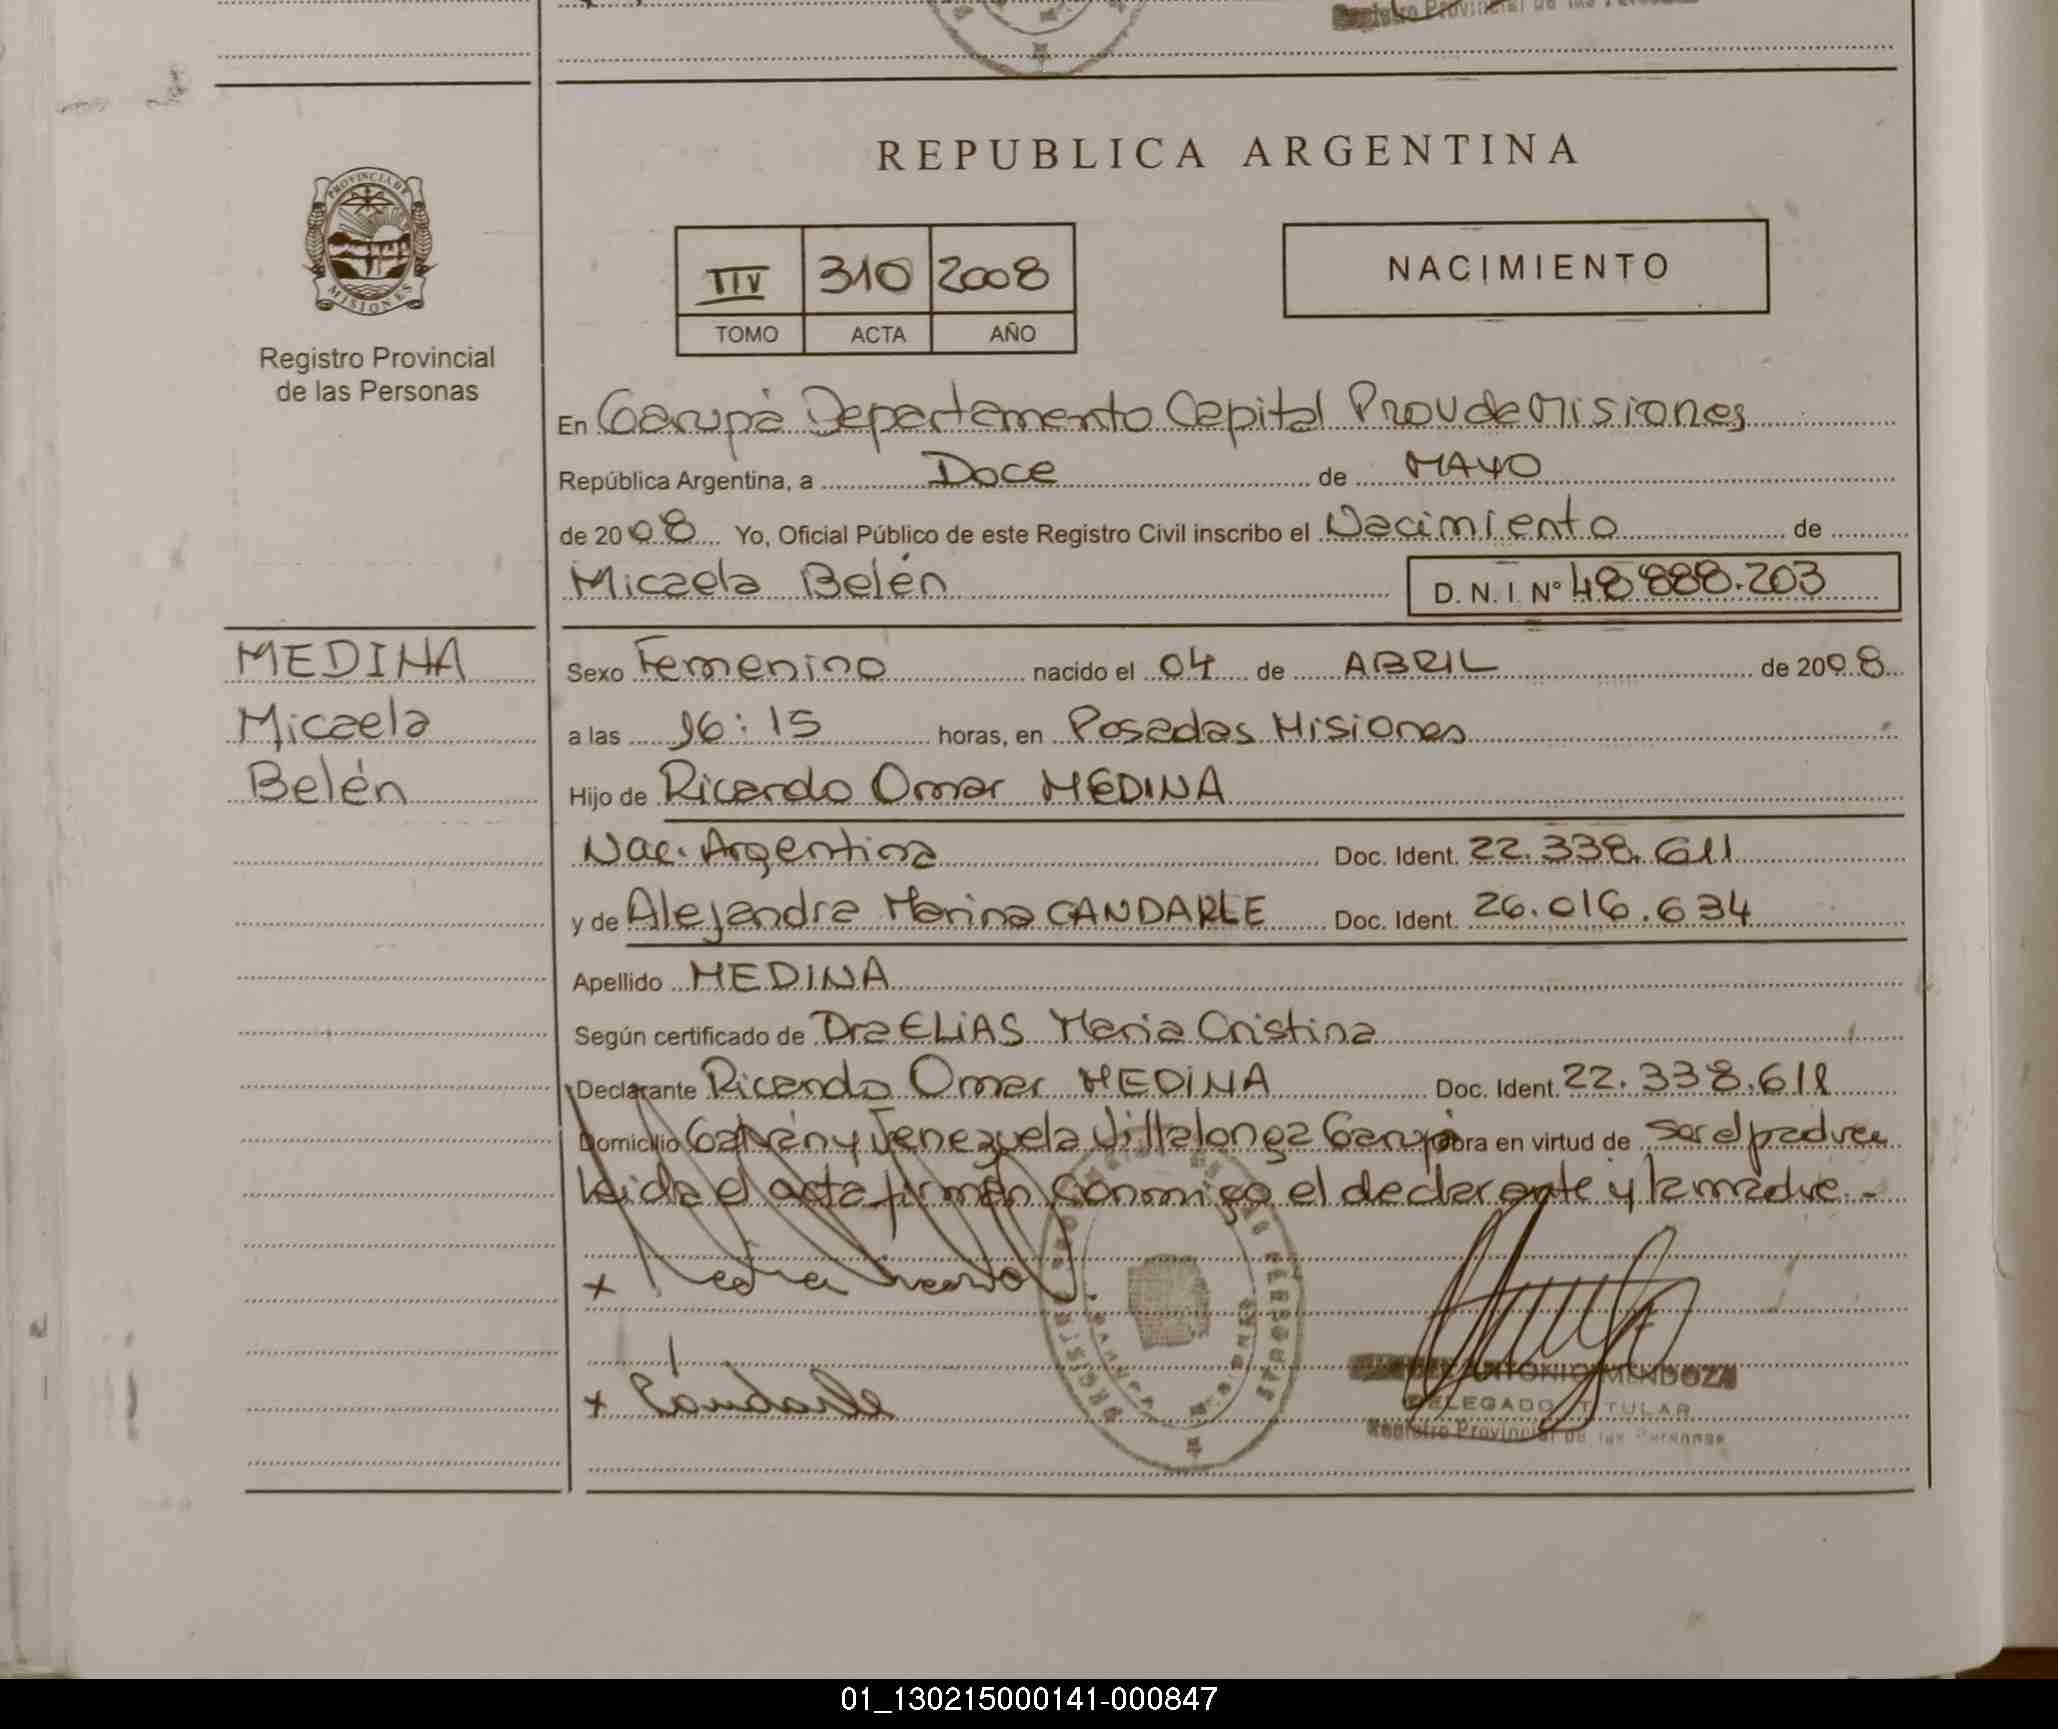 Registro Provincial de las Personas
PROVINCIA DE
MISIONES
Registro Provincial
de las Personas
REPUBLICA ARGENTINA
310 2008
TOMO ACTA AÑO
NACIMIENTO
En Garupá Departamento Capital Prov de Misiones
República Argentina, a Doce de MAYO
de 2008 Yo, Oficial Público de este Registro Civil inscribo el Nacimiento de
Micaela Belén D.N.I. Nº 48.888.203
MEDINA
Micaela
Belén
Sexo Femenino nacido el 04 de ABRIL de 2008
a las 16:15 horas, en Posadas Misiones
Hijo de Ricardo Omar MEDINA
Nac. Argentina Doc. Ident. 22.338.611
y de Alejandra Marina CANDARLE Doc. Ident. 26.016.634
Apellido MEDINA
Según certificado de Dra ELIAS Maria Cristina
Declarante Ricardo Omar MEDINA Doc. Ident. 22.338.611
Domicilio y Venezuela Villalonga Garupá obra en virtud de ser el padre
leida el acta firman conmigo el declarante y la madre.-
x Medina Ricardo
x Candarle
ANTONIO MENDOZA
DELEGADO TITULAR
Registro Provincial de las Personas
01_130215000141-000847